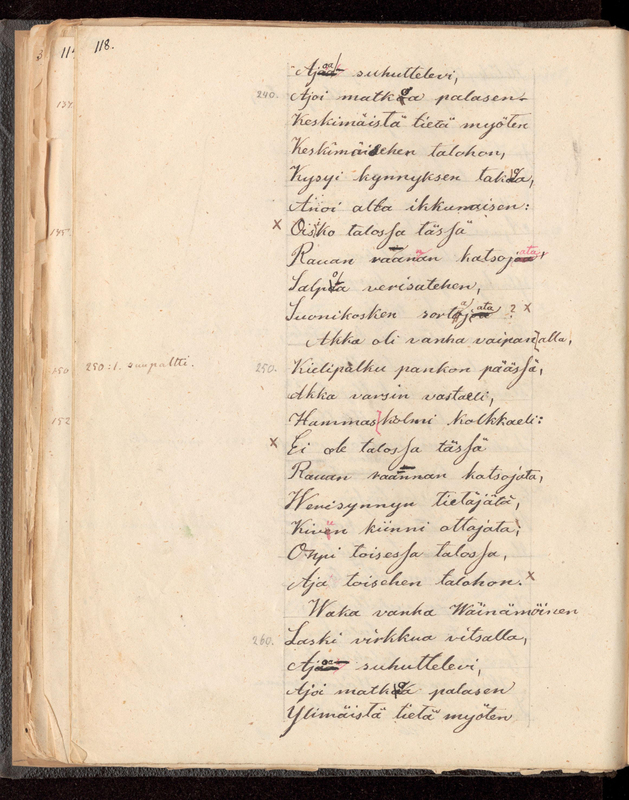 118.
Ajaa suhuttelevi,
240. Ajoi matkoa palasen
Keskimäistä tietä myöten
Keskimäisehen talohon,
Kysyi kynnyksen takoa,
Anoi alta ikkunaisen:
x Oisko talossa tässä
Rauan raannan katsojata
Salpoa verisatehen,
Suonikosken sortajata ? x
Akka oli vanha vaipan alla,
150 250:1. suupaltti. 250. Kielipalku pankon päässä,
Akka varsin vastaeli,
152 Hammas kolmi kolkkaeli:
x Ei ole talossa tässä
Rauan raannan katsojata,
Werisynnyn tietäjätä,
Kivun kiinni ottajata;
Onpi toisessa talossa,
Aja toisehen talohon. x
Waka vanha Wäinämöinen
260. Laski virkkua vitsalla,
Ajaa suhuttelevi,
Ajoi matkoa palasen
Ylimäistä tietä myöten